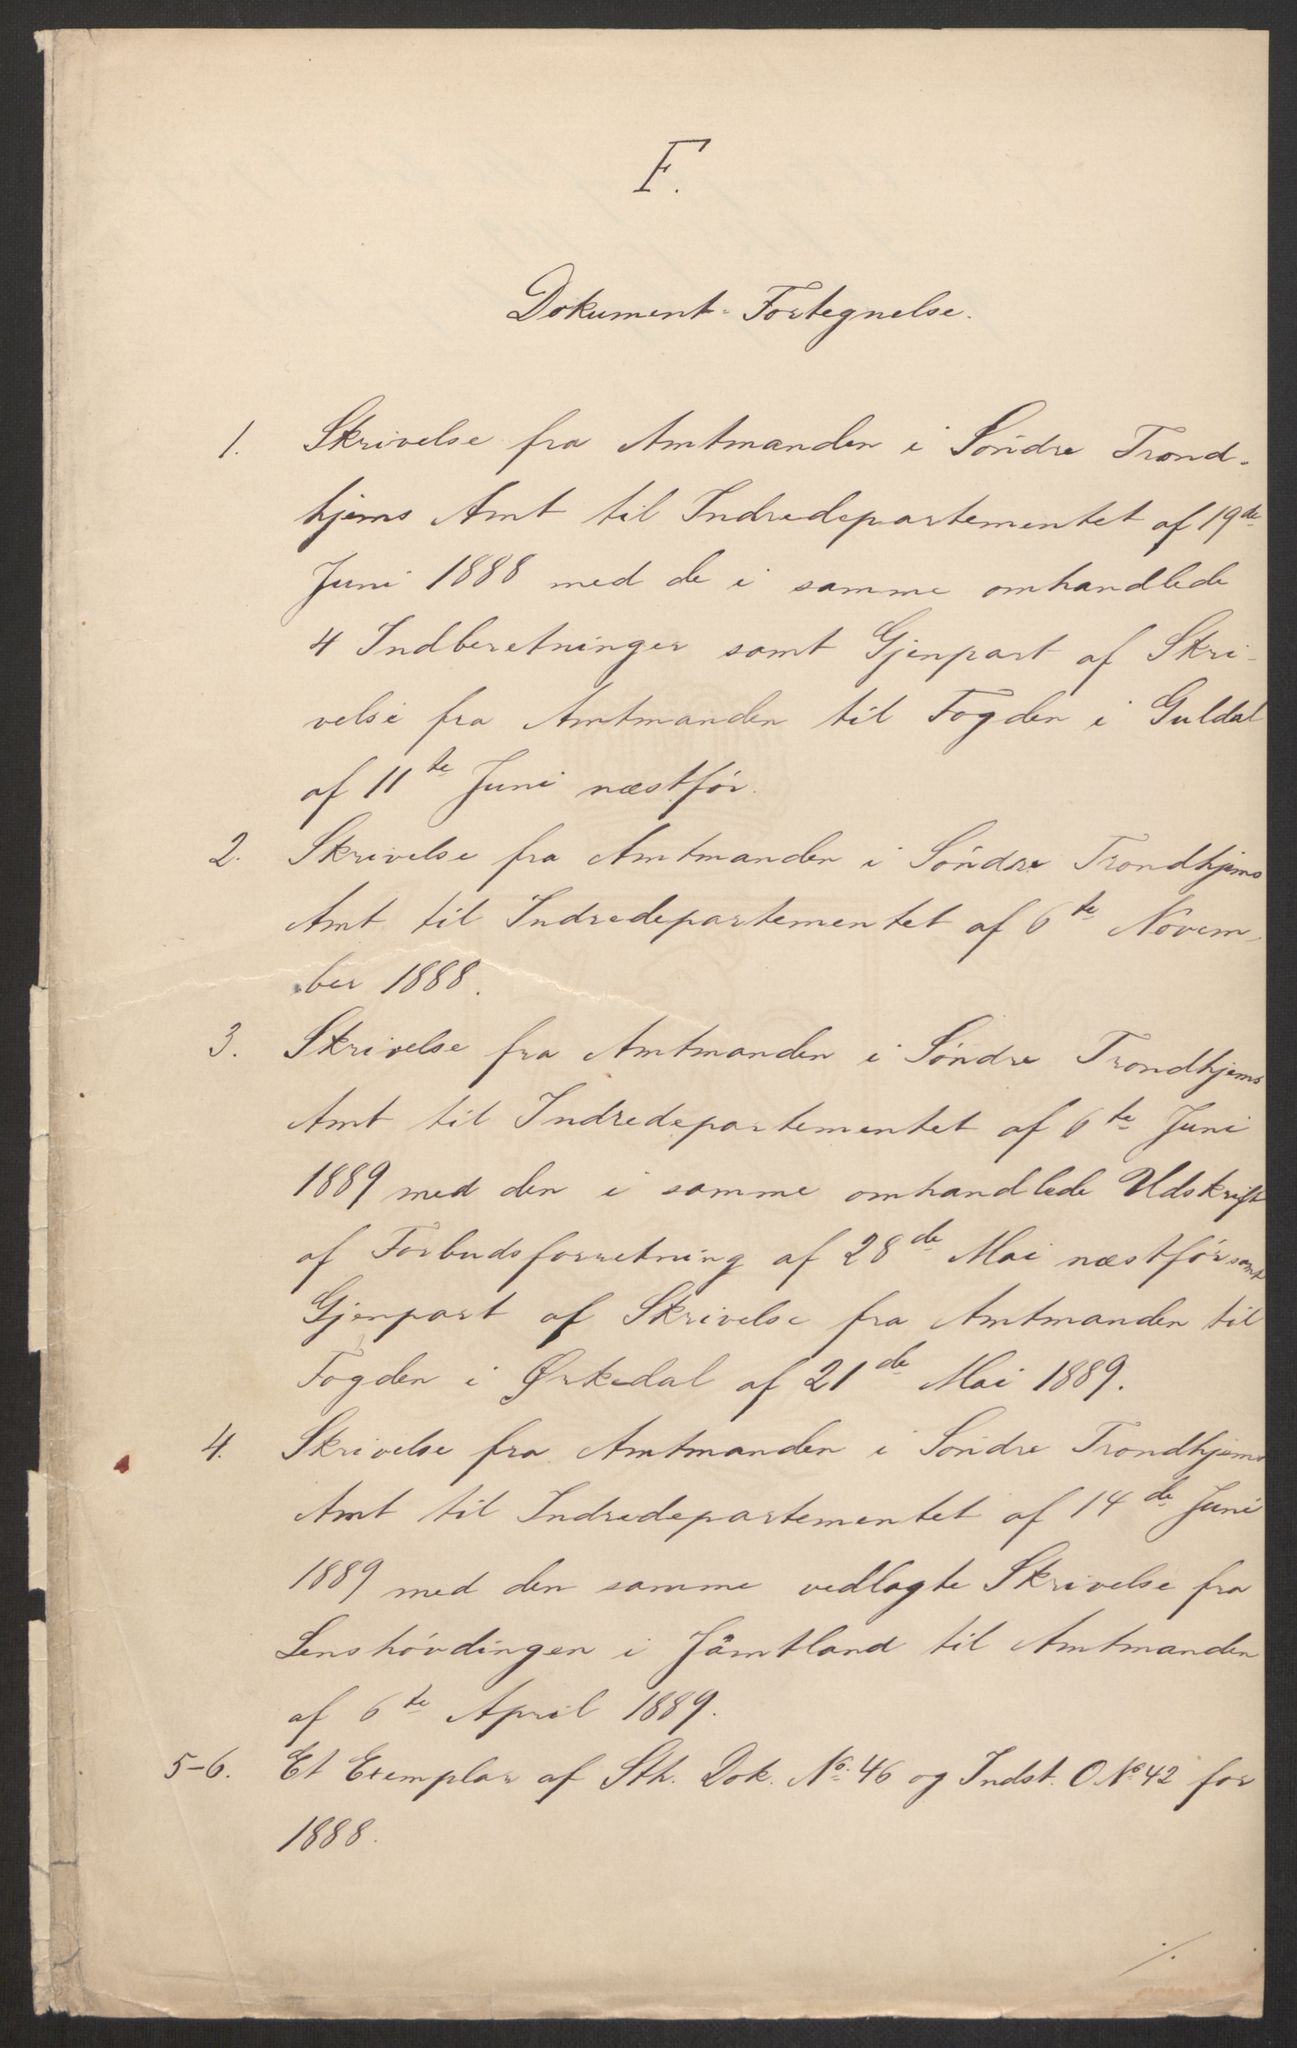 F.
Dokument-Fortegnelse.
1. Skrivelse fra Amtmanden i Söndre Trond-
hjems Amt til Indredepartementet af 19de
Juni 1888 med de i samme omhandlede
4 Indberetninger samt Gjenpart af Skri-
velse fra Amtmanden til Fogden i Guldal
af 11te Juni næstfør.
2. Skrivelse fra Amtmanden i Söndre Trondhjems
Amt til Indredepartementet af 6te Novem-
ber 1888.
3. Skrivelse fra Amtmanden i Söndre Trondhjems
Amt til Indredepartementet af 6te Juni
1889 med den i samme omhandlede Udskrift
af Forbudsforretning af 28de Mai næstfør samt
Gjenpart af Skrivelse fra Amtmanden til
Fogden i Ørkedal af 21de Mai 1889.
4. Skrivelse fra Amtmanden i Söndre Trondhjems
Amt til Indredepartementet af 14de Juni
1889 med den samme vedlagte Skrivelse fra
Lenshövdingen i Jämtland til Amtmanden
af 6te April 1889.
5-6. Et Exemplar af Sth. Dok. No. 46 og Indst. O No 42 for
1888.
./.